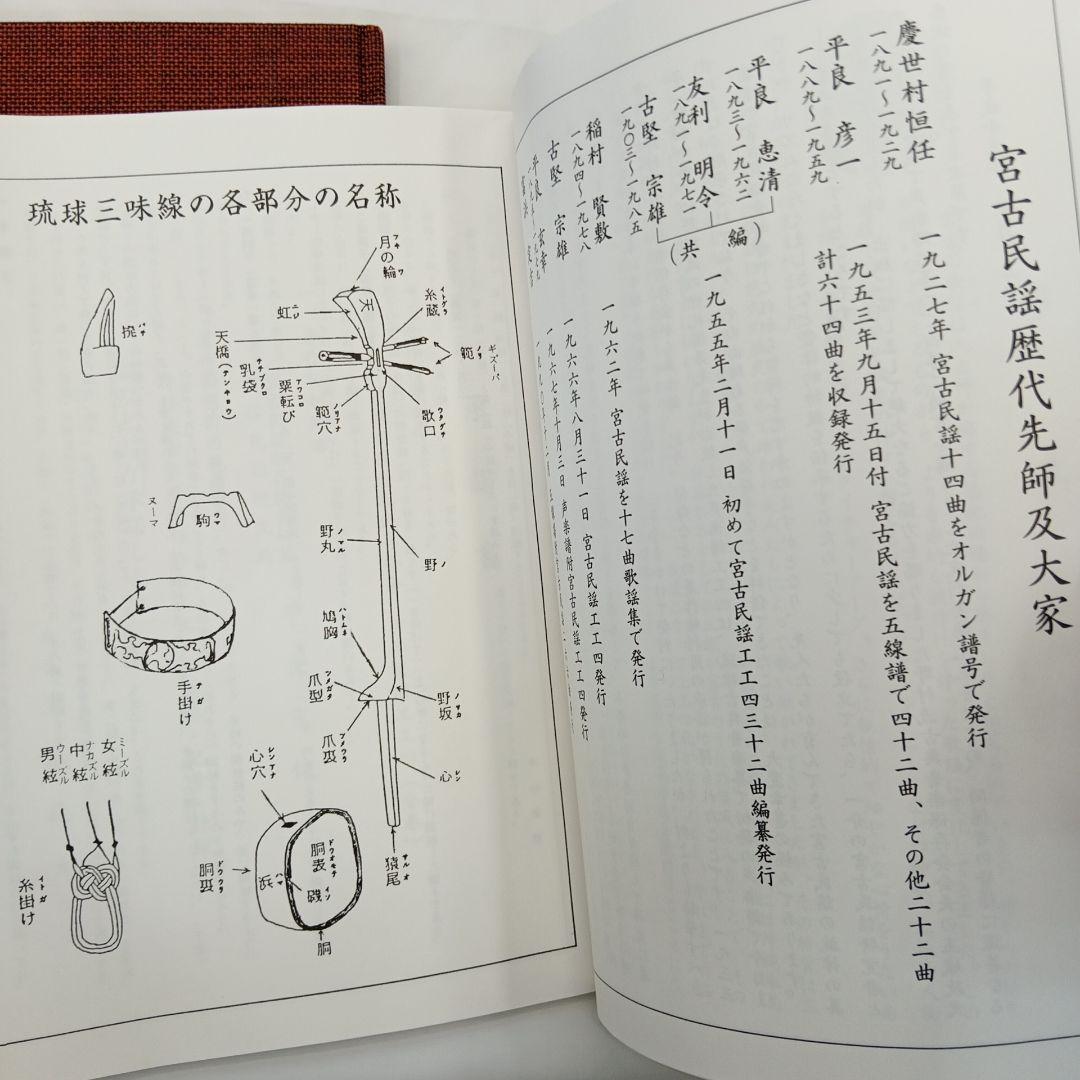 宮古民謡歴代先師及大家
慶世村恒任
一八九一〜一九二九
一九二七年 宮古民謡十四曲をオルガン譜号で発行
平良 彦一
一八八九〜一九五九
一九五三年九月十五日付 宮古民謡を五線譜で四十二曲、その他二十二曲
計六十四曲を収録発行
平良 恵清
一八九三〜一九六二
友利 明令
一八九一〜一九七一
古堅 宗雄
一九〇三〜一九八五
(共編)
一九五五年二月十一日 初めて宮古民謡工工四三十二曲編纂発行
稲村 賢敷
一八九四〜一九七八
一九六二年 宮古民謡を十七曲歌謡集で発行
古堅 宗雄
一九六六年八月三十一日 宮古民謡工工四発行
平良 玄幸
一九六七年十月三日 声楽譜附宮古民謡工工四発行
琉球三味線の各部分の名称
月の輪
虹
天
糸蔵
範
ギズーパ
天橋(テンキョウ)
乳袋
粟転び
範穴
歌口
撓
駒
ヌーマ
野丸
野
鳩胸
爪型
爪裏
野坂
心
心穴
猿尾
胴表
磯
浜
胴裏
胴
手掛け
女絃
ミーズル
中絃
ナカズル
男絃
ウーズル
糸掛け